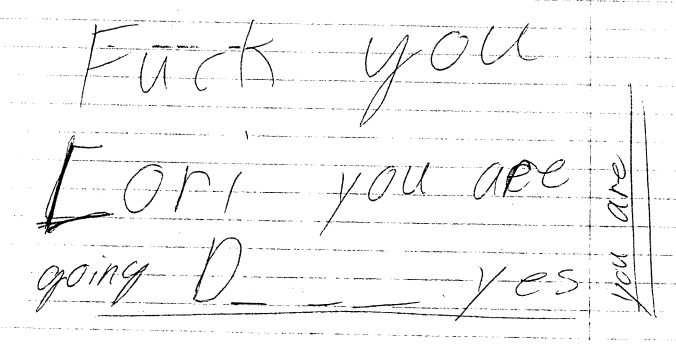 Fuck you
Lori you are
going D_ _ _ yes
you are